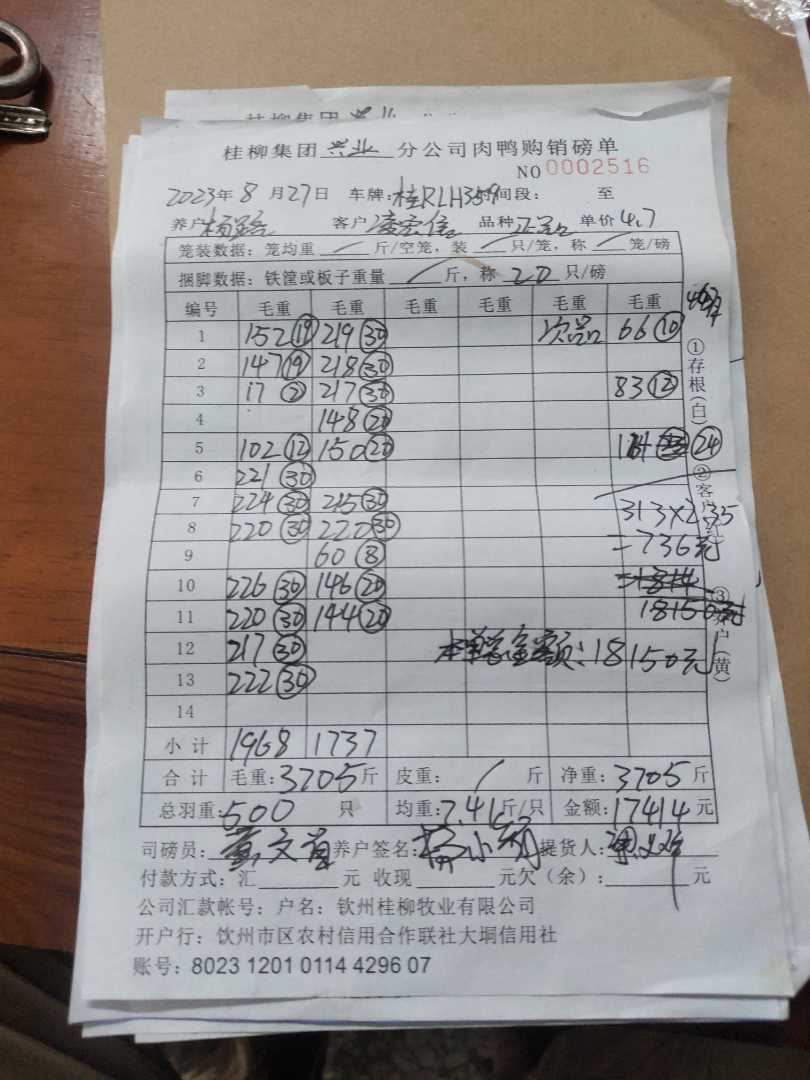 桂柳集团 兴业
桂柳集团 兴业 分公司肉鸭购销磅单
NO 0002516
2023年 8 月 27 日 车牌: 桂RLH359 时间段: 至
养户 客户 品种 正品 单价 4.7
笼装数据: 笼均重 / 斤/空笼, 装 / 只/笼, 称 / 笼/磅
捆脚数据: 铁筐或板子重量 / 斤, 称 20 只/磅
编号 毛重 毛重 毛重 毛重 毛重 毛重
1 152 ⑲ 219 ㉚ 次品 66 ⑩
2 147 ⑲ 218 ㉚
3 17 ② 217 ㉚ 83 ⑫
4 148 ⑳
5 102 ⑫ 150 ⑳ ㉔
6 221 ㉚
7 224 ㉚ 215 ㉚
8 220 ㉚ 220 ㉚ 313×2.35
9 60 ⑧ =736元
10 226 ㉚ 146 ⑳ =1814
11 220 ㉚ 144 ⑳ 18150元
12 217 ㉚ 金额:18150元
13 222 ㉚
14
小计 1968 1737
合计 毛重: 3705 斤 皮重: / 斤 净重: 3705 斤
总羽重: 500 只 均重: 7.41 斤/只 金额: 17414 元
司磅员: 养户签名: 提货人:
付款方式: 汇 元 收现 元欠(余): 元
公司汇款帐号: 户名: 钦州桂柳牧业有限公司
开户行: 饮州市区农村信用合作联社大垌信用社
账号: 8023 1201 0114 4296 07
①存根(白)
②客户(红)
③养户(黄)